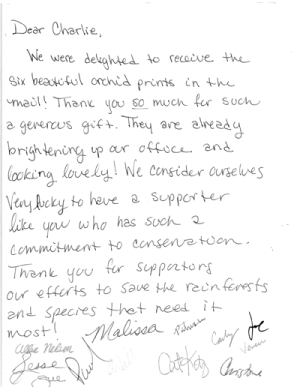 Dear Charlie,
We were delighted to receive the
six beautiful orchid prints in the
mail! Thank you so much for such
a generous gift. They are already
brightening up our office and
looking lovely! We consider ourselves
very lucky to have a supporter
like you who has such a
commitment to conservation.
Thank you for supporting
our efforts to save the rainforests
and species that need it
most!
Malissa
Joe
Jesse
Paul